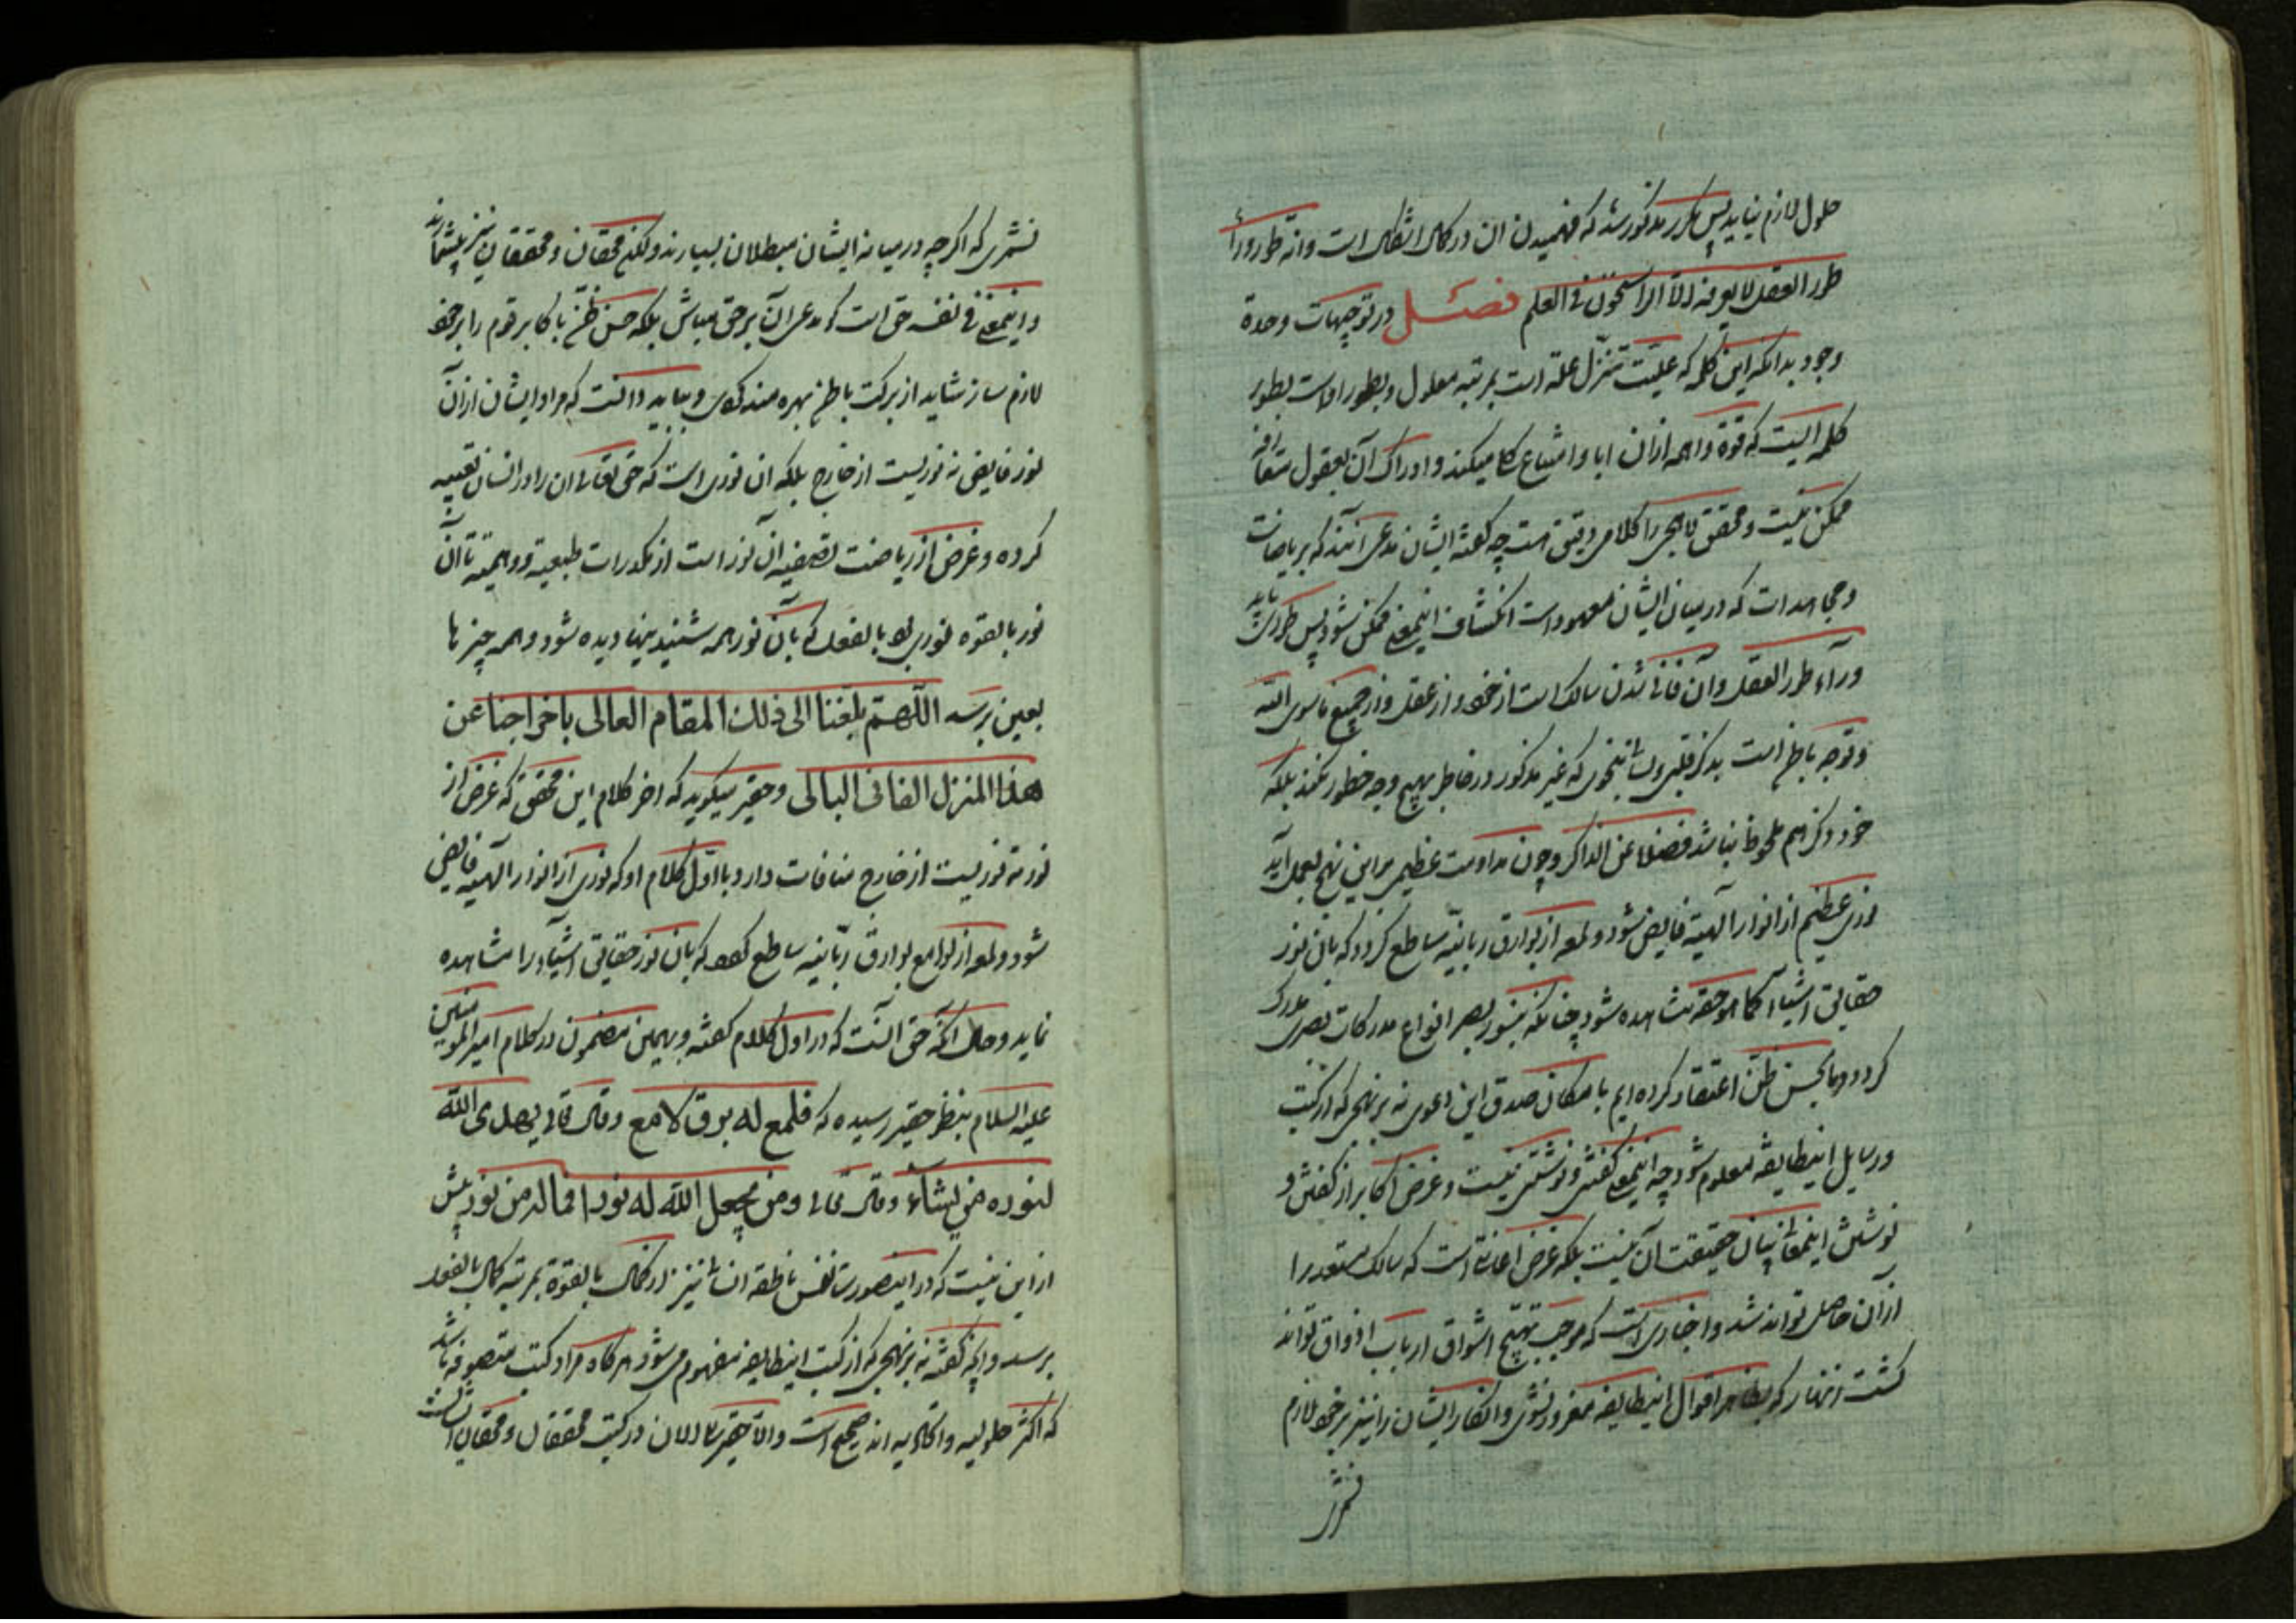 حلول لازم نیاید پس مکرر مذکور شد که فهمیدن ان در کمال اشکال است وانه طور وراء
طور العقل لا یعرفه الا الراسخون فی العلم فصل در توجیهات وحدة
وجود بدانکه این کلمه که علیّت تنزّل علة است بمرتبه معلول و بطور اوست بطور
کلمه ایست که قوة واهمه ازان ابا وامتناع کلی میکند وادراک آن بعقول متعارفه
ممکن نیست ومحقق لاهجی را کلامی دقیق است چه گفته ایشان مدعی آنند که بریاضات
ومجاهدات که در میان ایشان معهود است انکشاف اینمعنی ممکن شود پس طوری باید
ورآء طور العقل وآن فانی شدن سالک است از خود و از عقل و از جمیع ما سوی الله
وتوجه باطن است بذکر قلبی ولسانی بنحوی که غیر مذکور در خاطر بهیچ وجه خطور نکند بلکه
خود و ذکر هم ملحوظ نباشد فضلا عن الذاکر وچون مداومت عظیمی براین نهج بعمل آید
نوری عظیم از انوار الهیه فایض شود ولمعه از بوارق ربانیّه ساطع گردد که بان نور
حقایق اشیا کما هو حقه مشاهده شود چنانکه بنور بصر انواع مدرکات بصری مدرک
گردد وما بحسن ظن اعتقاد کرده ایم بامکان صدق این دعوی نه بر نهجی که از کتب
ورسایل اینطایفه معلوم شود چه اینمعنی گفتنی ونوشتنی نیست وغرض اکابر از گفتن و
نوشتن اینمعانی بیان حقیقت آن نیست بلکه غرض اعانتی است که سالک مستعد را
ازان حاصل تواند شد و اخباری است که موجب تهییج اشواق ارباب اذواق تواند
گشت زنهار که بظاهر اقوال اینطایفه مغرور نشوی وانکار ایشان را نیز بر خود لازم
نشمری
نشمری که اگرچه در میانه ایشان مبطلان بسیارند ولکن محقان ومحققان نیز بیشمارند
واینمعنی فی نفسه حق است گو مدعی آن بر حق مباش بلکه حسن ظن باکابر قوم را بر خود
لازم ساز شاید از برکت باطن بهره مند گردی وبباید دانست که مراد ایشان از آن
نور فایض نه نوریست از خارج بلکه ان نوری است که حق تعالی ان را در انسان تعبیه
کرده وغرض از ریاضت تصفیه ان نور است از مکدرات طبیعیه ووهمیه تا آن
نور بالقوه نوری بود بالفعل که بآن نور همه شنیدنیها دیده شود وهمه چیزها
بعین برسد اللّهمّ بلّغنا الی ذلک المقام العالی باخراجنا عن
هذا المنزل الفانی البالی وحقیر میگوید که اخر کلام این محقق که غرض از
نور نه نوریست از خارج منافات دارد با اوّل کلام او که نوری از انوار الهیه فایض
شود ولمعه از لوامع بوارق ربّانیه ساطع گردد که بان نور حقایق اشیاء را مشاهده
نماید وحال انکه حق آنست که در اول کلام گفته و بهمین مضمون در کلام امیرالمومنین
علیه السلام بنظر حقیر رسیده که فلمع له برق لامع وقال تعالی یهدی الله
لنوره من یشاء وقال تعالی ومن یجعل الله له نورا فما له من نور بیش
از این نیست که در اینصورت نفس ناطقه انسانی نیز از کمال بالقوة بمرتبه کمال بالفعل
برسد وآنکه گفته نه بر نهجی که از کتب اینطایفه مفهوم میشود هرگاه مراد کتب متصوفه باشد
که اکثر حلولیه واتحادیه اند صحیح است والا حقیر تا الان در کتب محققان ومحقان